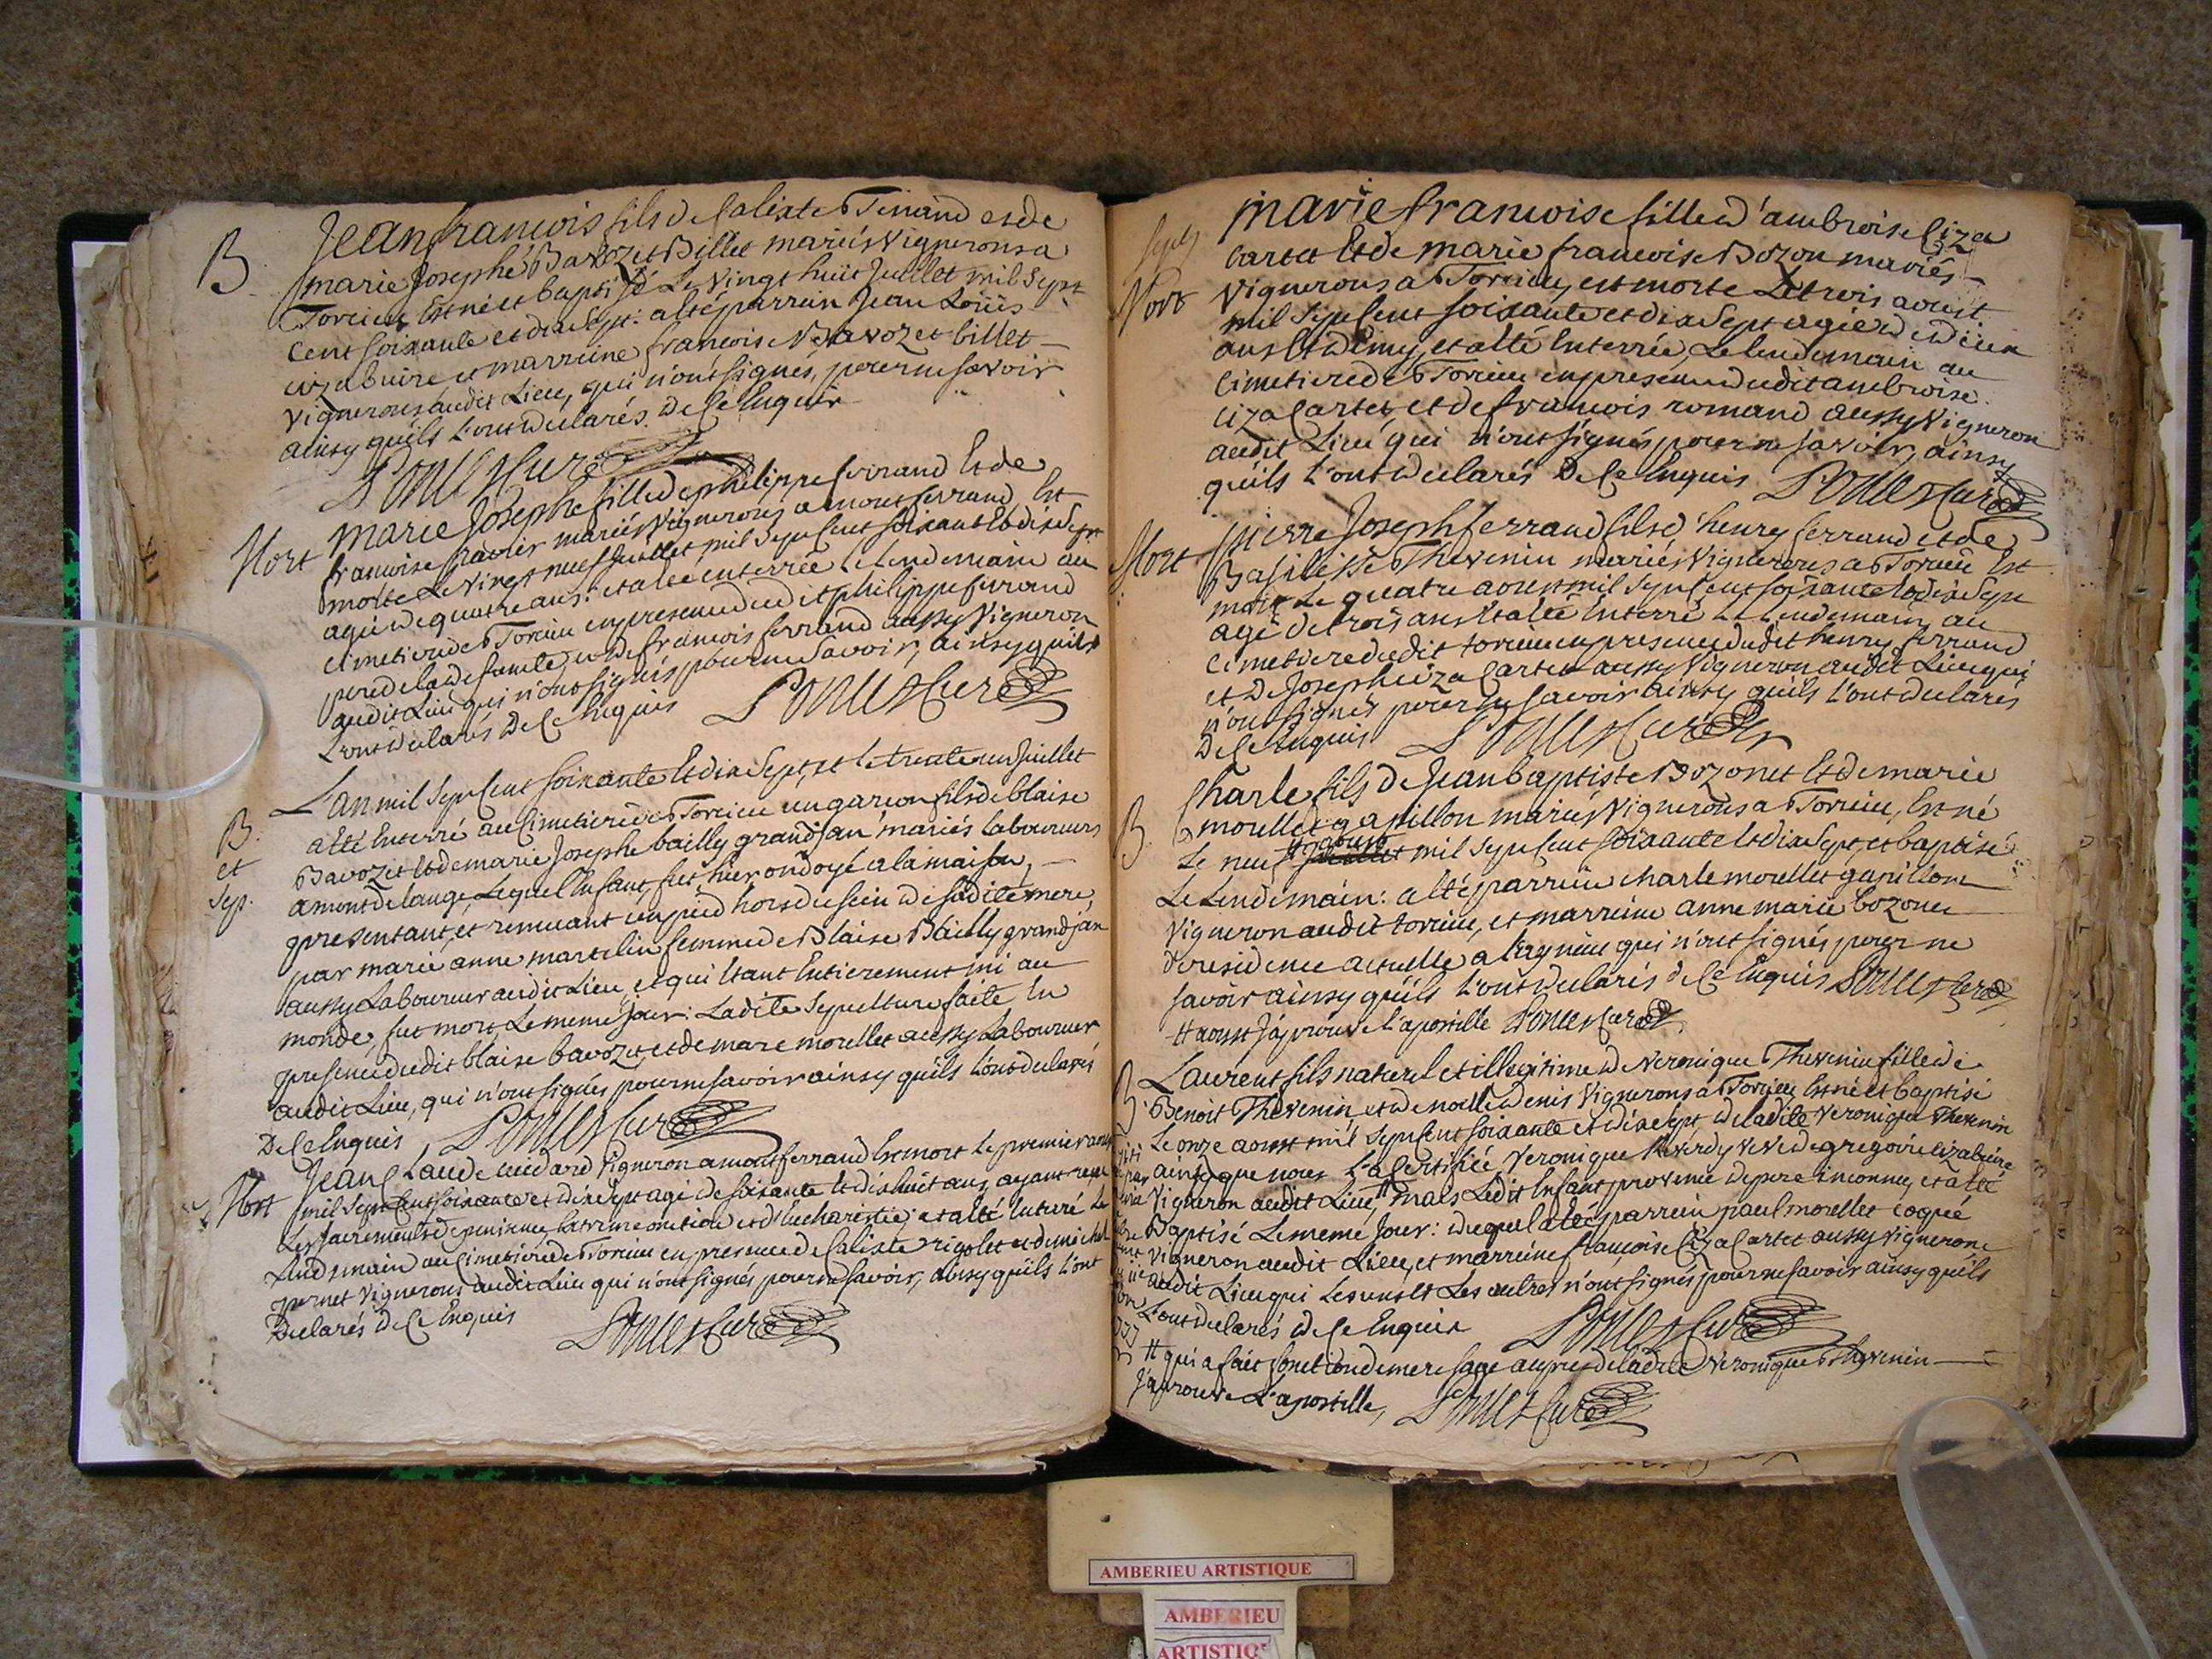 B
Jean francois fils de Calixte Tenand et de
marie Josephe Bavozet Billet mariés Vignerons a
Torcieu Est né et baptisé Le Vingt huit Juillet mil Sept
Cent soixante et dix Sept : a été parrein Jean Loüis
cizabuire et marreine francoise Bavozet billet —
Vignerons audit Lieu, qui n'ont signés, pour ne savoir
ainsy qu'ils L'ont déclarés De Ce Enquis
Curé
Mort
Marie Josephe fille de philippe ferrand Et de
francoise mariés Vignerons a montferrand Est
morte Le Vingt neuf Juillet mil Sept Cent soixante Et dix Sept
agée de quatre ans : et a été enterrée Le Lendemain au
cimetiere de Torcieu en presence dudit philippe ferrand
pere de la defunte, et de francois ferrand aussy Vigneron
audit Lieu qui n'ont signés pour ne Savoir, ainsy qu'ils
L'ont déclarés De Ce Enquis
Curé
B.
et
Sep.
L'an mil Sept Cent soixante Et dix Sept, et Le trente un Juillet
a été Enterré au Cimetiere de Torcieu un garcon fils de blaise
Bavozet Et de marie Josephe bailly grandjan mariés Laboureurs
a montdelange, Lequel Enfant fut hier ondoyé a la maison, —
presentant, et remuant un pied hors du sein de sadite mere,
par marie anne martelin femme de Blaise Bailly grandjan
aussy Laboureur audit Lieu, et qui Etant Entierement mi au
monde, fut mort Le meme jour : Ladite Sepulture faite En
presence dudit blaise bavozet, et de marc morellet aussy Laboureur
audit Lieu, qui n'ont signés pour ne savoir ainsy qu'ils L'ont déclarés
De Ce Enquis
Curé
Mort
Jean Claude Vigneron a montferrand Est mort Le premier aoust
mil Sept Cent soixante et dix Sept agé de soixante Et dix huit ans, ayant reçu
Les Sacrements de penitence, Extreme onction et d'Eucharistie ; et a été Enterré Le
Lendemain au Cimetiere de Torcieu en presence de Calixte rigolet et de michel
pernet Vignerons audit Lieu qui n'ont signés pour ne savoir, ainsy qu'ils L'ont
Déclarés De Ce Enquis
Curé
Mort
marie francoise fille d'ambroise Ciza
Cartet Et de marie francoise Bozon mariés —
Vignerons a Torcieu, est morte Le trois aoust
mil Sept Cent soixante et dix Sept agée de deux
ans Et demy, et a été Enterrée Le Lendemain au
Cimetiere de Torcieu en presence dudit ambroise
Ciza Cartet, et de francois romand aussy Vigneron
audit Lieu qui n'ont signés pour ne savoir, ainsy
qu'ils L'ont déclarés De Ce Enquis
Curé
Mort
pierre Joseph ferrand fils d'henry ferrand et de
Basilisse Thevenin mariés Vignerons a Torcieu Est
mort Le quatre aoust mil Sept Cent soixante Et dix Sept
agé de trois ans Et a été Enterré Le Lendemain au
Cimetiere dudit torcieu en presence dudit henry ferrand
et de Joseph ciza Cartet aussy Vigneron audit Lieu qui
n'ont signés pour ne savoir ainsy qu'ils L'ont déclarés
De Ce Enquis
Curé
B.
Charle fils de Jean baptiste Bozonet Et de marie
morellet gapillon mariés Vignerons a Torcieu, Est né
Le neuf # aoust mil Sept Cent soixante Et dix Sept, et baptisé
Le Lendemain : a été parrein charle morellet gapillon
Vigneron audit torcieu, et marreine anne marie bozonet
de residence actuelle a Lagnieu qui n'ont signés pour ne
savoir ainsy qu'ils L'ont déclarés De Ce Enquis Curé
# aoust J'aprouve L'apostille Curé
B.
Laurent fils naturel et illegitime de Veronique Thevenin fille de
Benoit Thevenin, et de noelle Denis Vignerons a Torcieu Est né et baptisé
Le onze aoust mil Sept Cent soixante et dix Sept, de ladite Veronique Thevenin
ainsy que nous L'a Certifiée Veronique Reverdy Veve de gregoire cizabuire
Vigneron audit Lieu, # mais Ledit Enfant provenu de pere inconnu, et a été
Baptisé Le meme Jour : duquel a été parrein paul morellet coqué
Vigneron audit Lieu, et marreine francoise Ciza Cartet aussy Vigneronne
audit Lieu qui Les uns Et Les autres n'ont signés pour ne savoir ainsy qu'ils
L'ont déclarés De Ce Enquis
Curé
# qui a fait fonction de mere sage aupres de ladite Veronique Thevenin —
J'aprouve L'apostille,
Curé
AMBERIEU ARTISTIQUE
AMBERIEU
ARTISTIQ